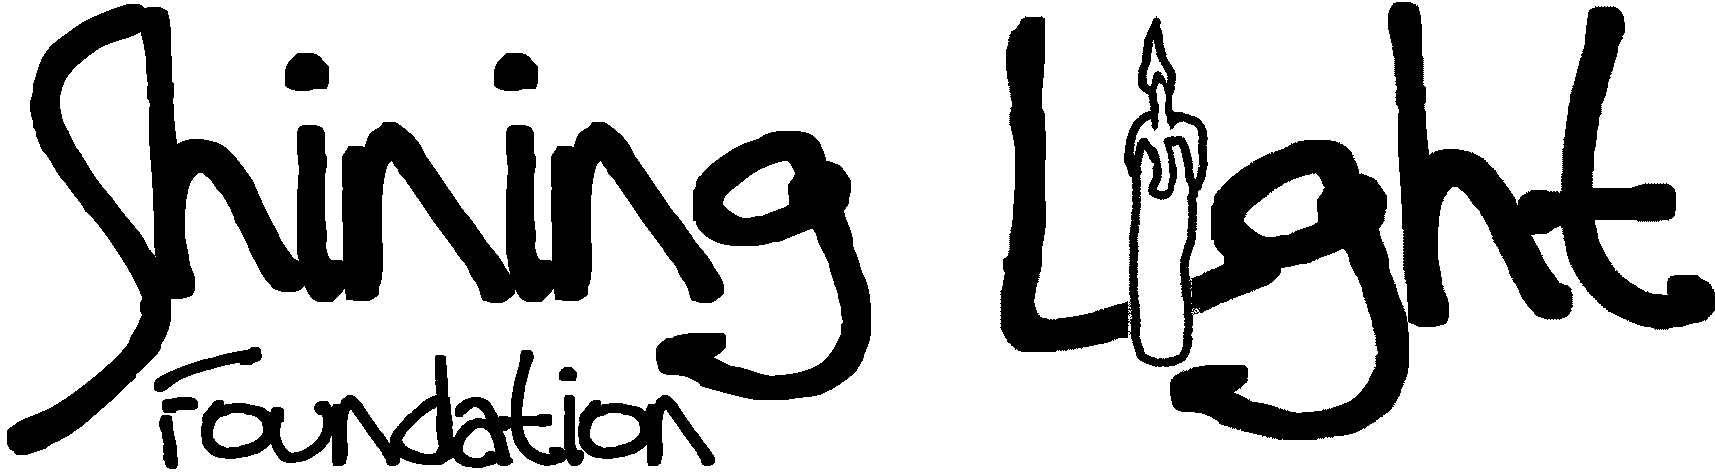 Shining Light
Foundation